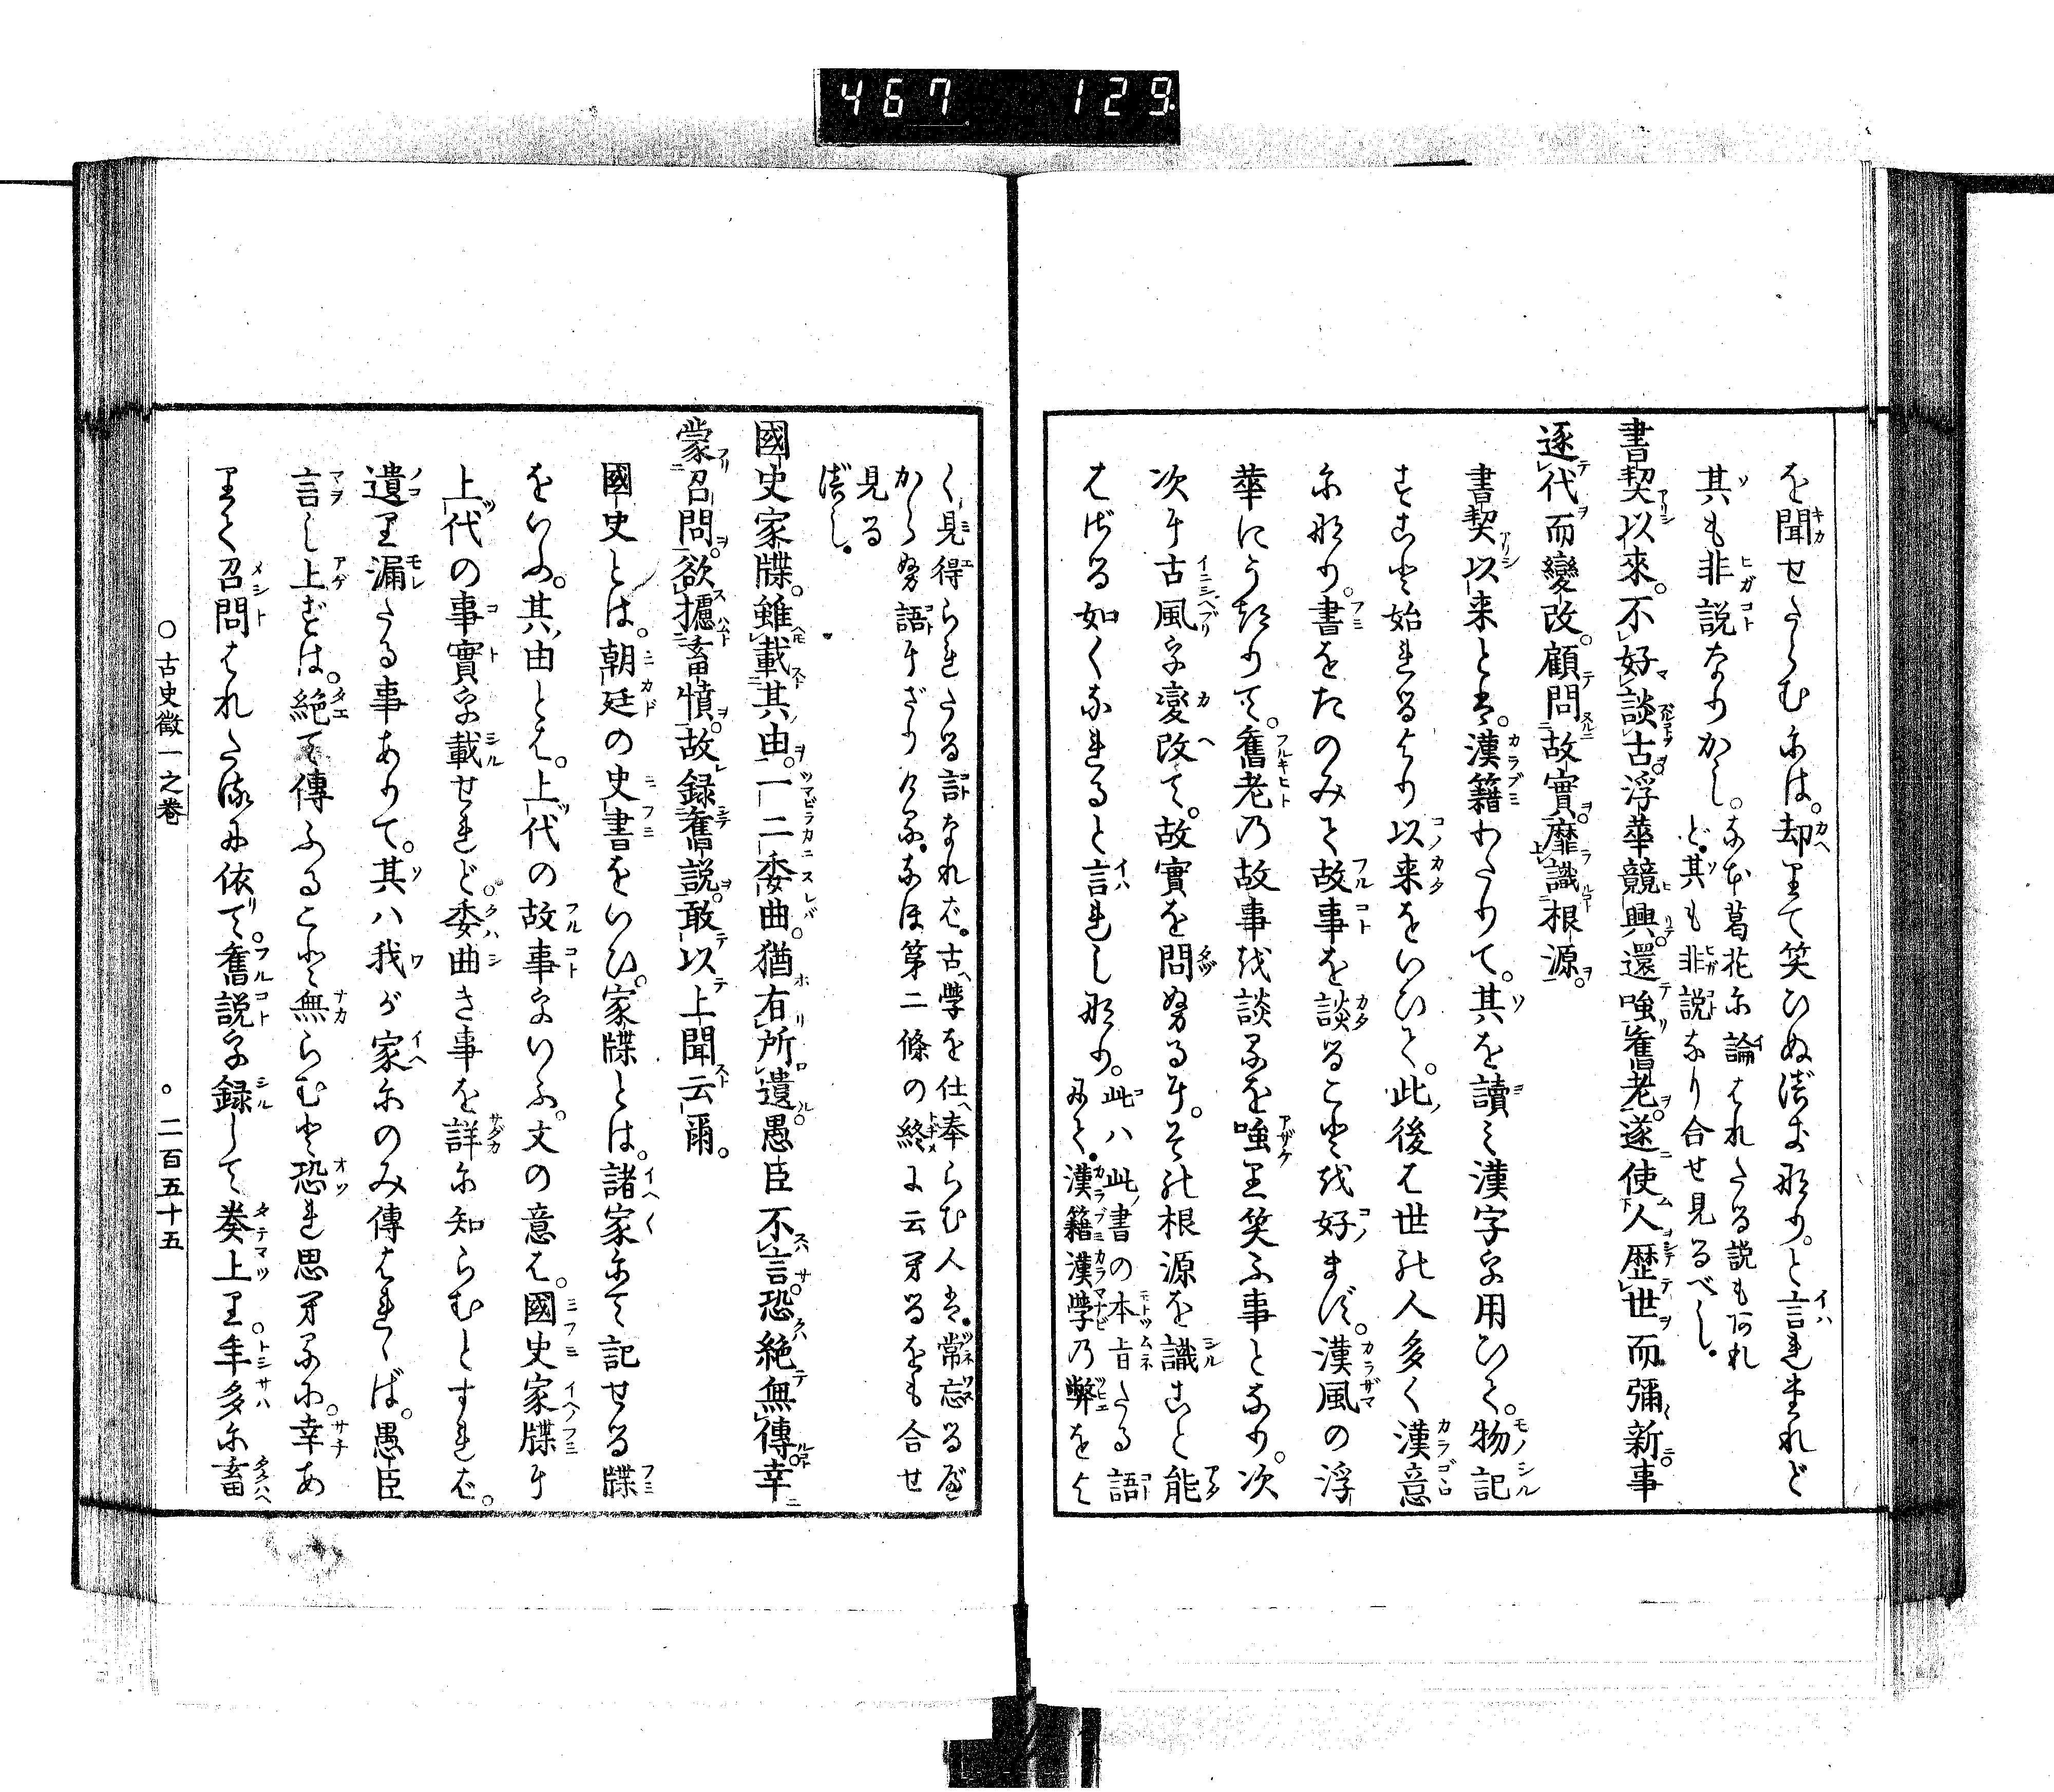 467 129
を聞せたらむには。却りて笑ひぬ べき事なり。と言れまれど
其も非説なりかし。なほ葛花に論はれたる説もあれ
ど。其も非説なり合せ見るべし。
書契以來。不好談古。浮華競興。還嗤舊老。遂使人歷世而彌新。事
逐代而變改。顧問故實。靡識根源。
書契以来とは。漢籍わたりて。其を讀み漢字を用ひて。物記
すこと始れるより以来をいひて。此後は世の人多く漢意
になり。書をたのみて故事を談ることを好まず。漢風の浮
華にうつりて。舊老の故事を談るを嗤り笑ふ事となり。次
次に古風を變改て。故實を問ぬるに。その根源を識こと能
はざる如くなれると言れしなり。此は此書の本旨たる語
にて。漢籍漢學の弊をよ
く見得られたる言なれば。古學を仕奉らむ人は。常忘る
から努語にざりける。なほ第二條の終に云するをも合せ
見る
べし。
國史家牒。雖載其由。一二委曲。猶有所遺。愚臣不言。恐絶無傳。幸
蒙召問。欲攄畜憤。故録舊説。敢以上聞云爾。
國史とは。朝廷の史書をいひ。家牒とは。諸家にて記せる牒
をいふ。其由とは。上代の故事をいふ。文の意は。國史家牒に
上代の事實を載せれど。委曲き事を詳に知らむとすれば。
遺り漏たる事ありて。其ハ我が家にのみ傳はれゝば。愚臣
言し上ずは。絶て傳ふること無らむと恐れ思するに。幸あ
りて召問はれたるに依て。舊説を録して奏上り。年多に畜
○古史徴一之巻
○二百五十五